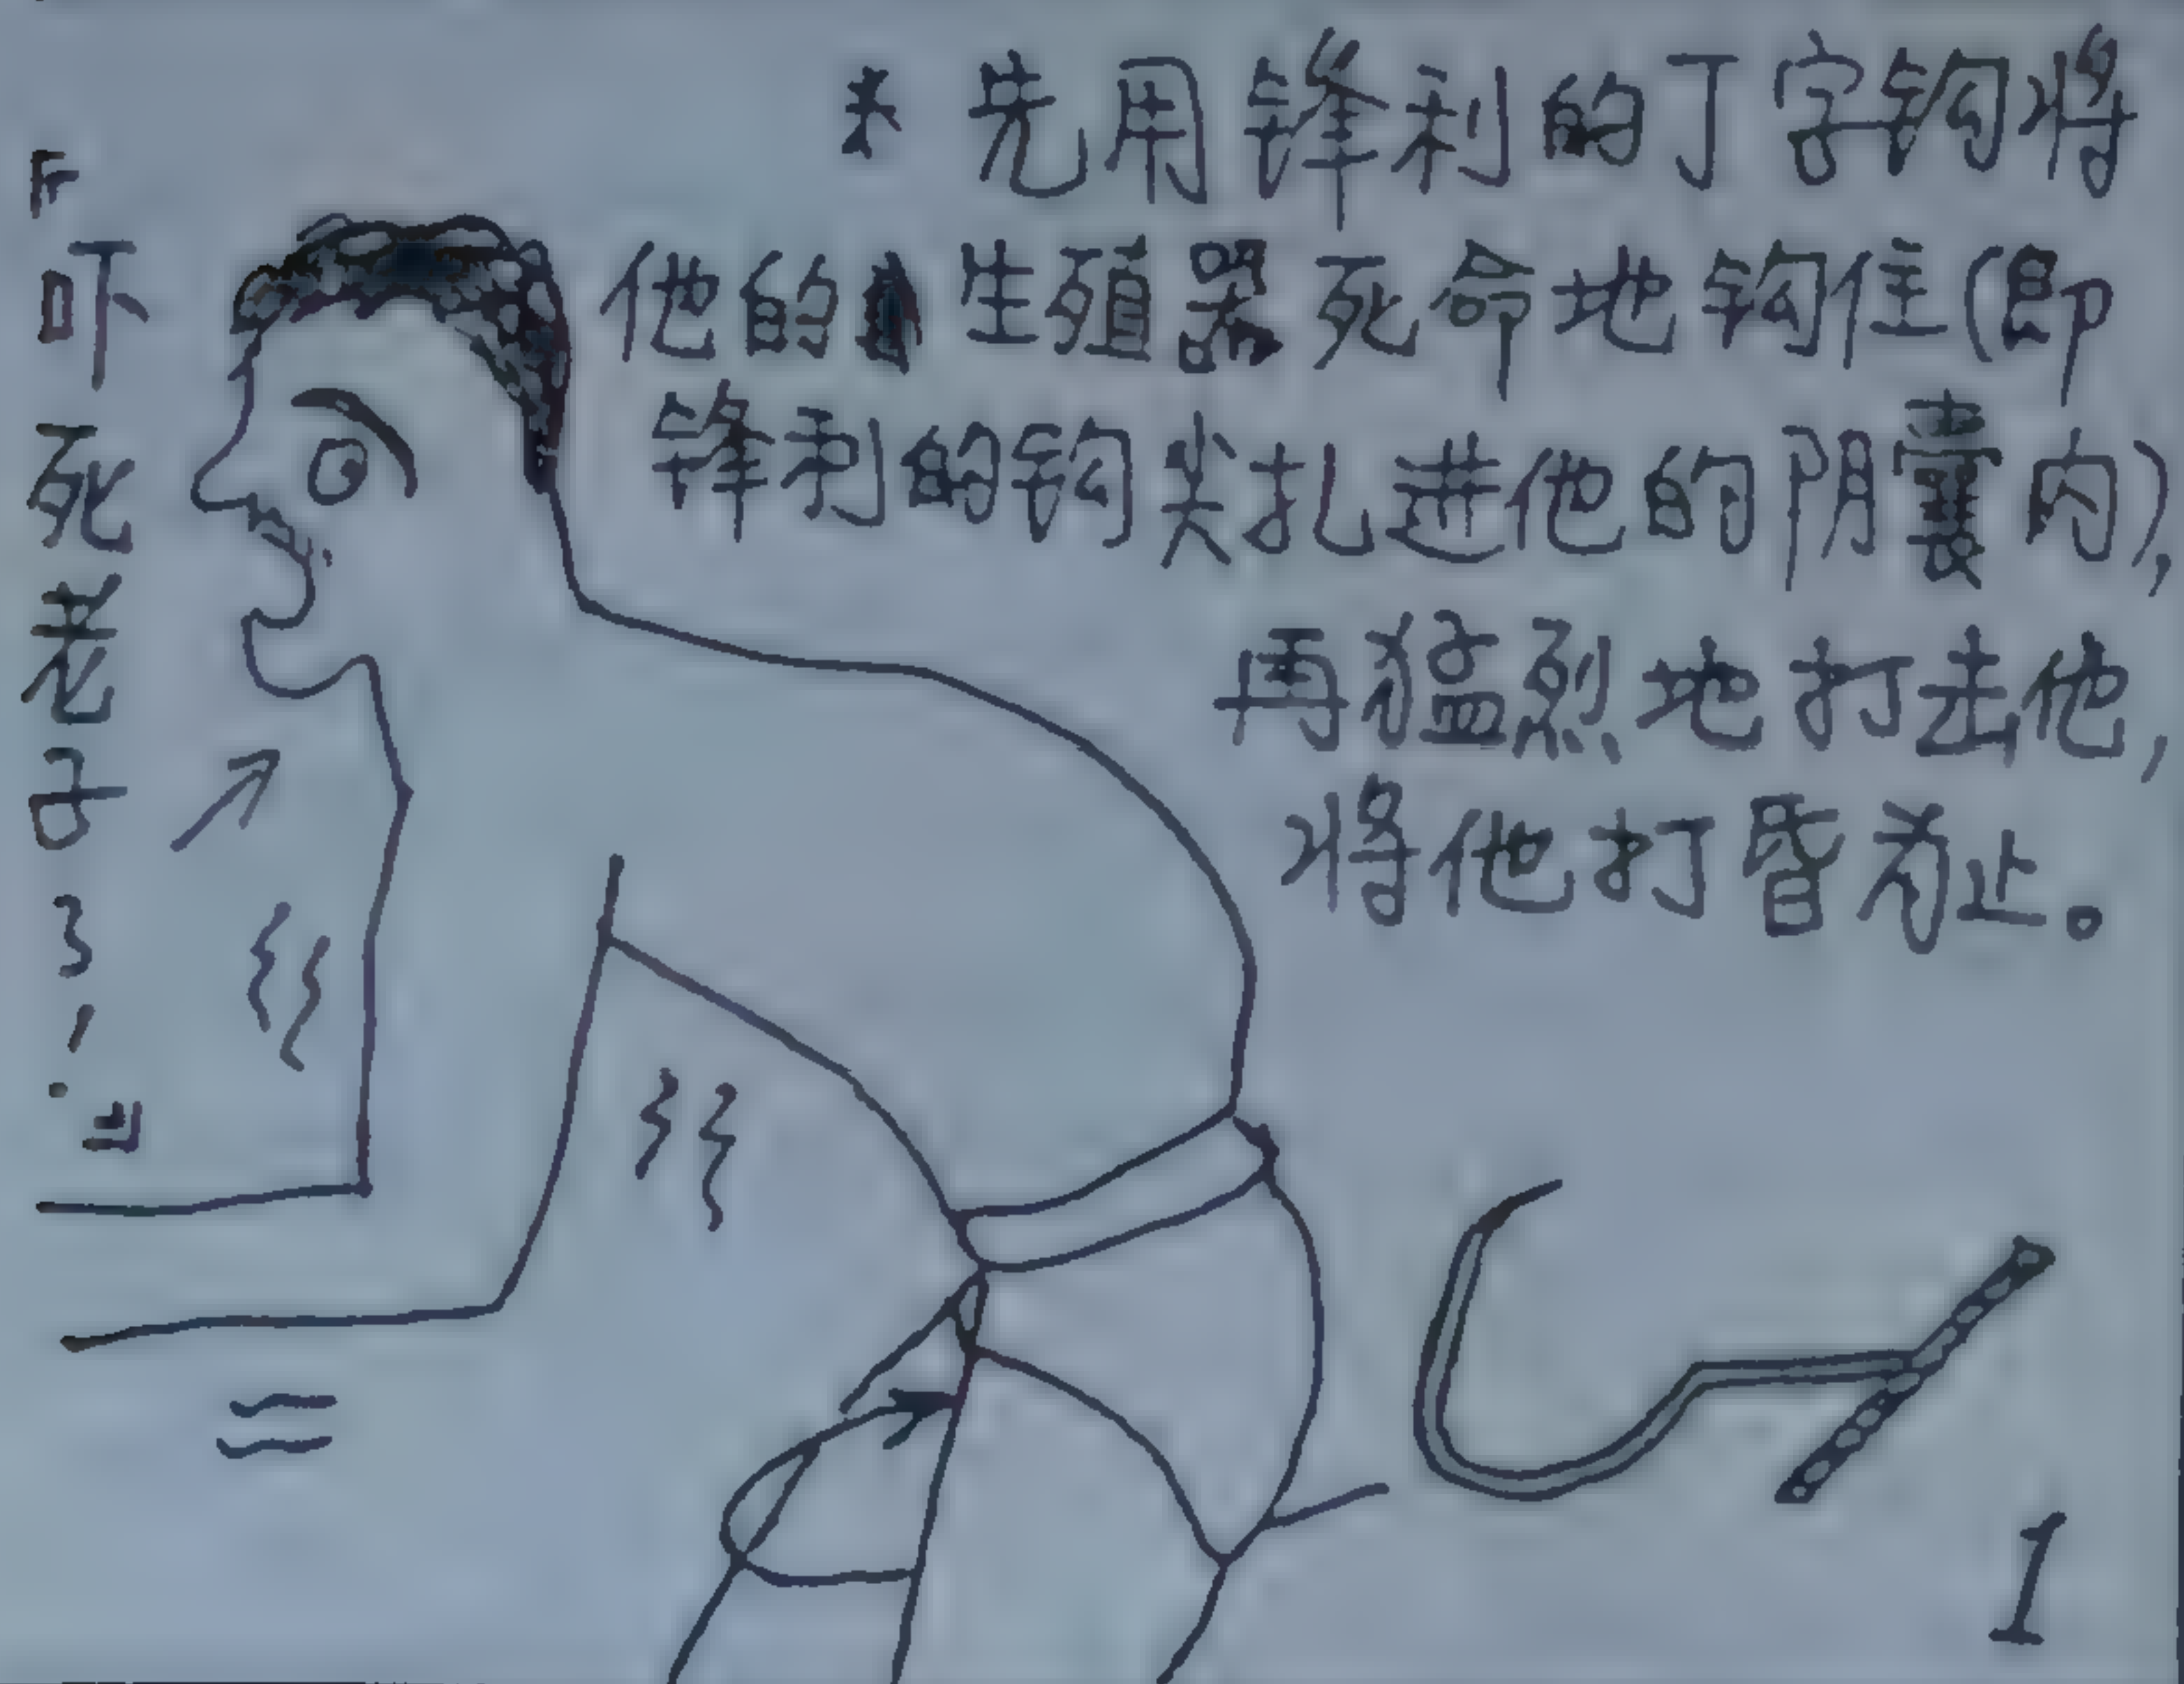 * 先用锋利的丁字钩将
他的生殖器死命地钩住(即
锋利的钩尖扎进他的阴囊内),
再猛烈地打击他,
将他打昏为止。
『吓死老子了!』
1